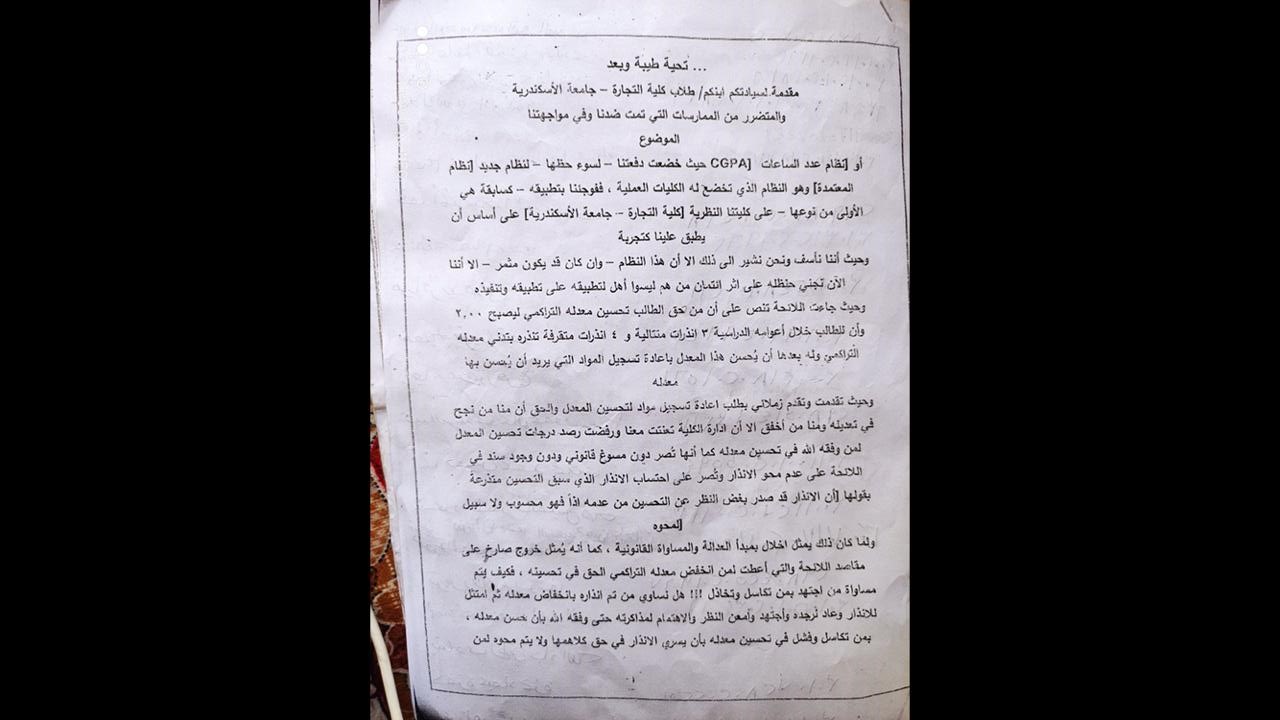 ... تحية طيبة وبعد
مقدمة لسيادتكم ابنكم/ طلاب كلية التجارة – جامعة الأسكندرية
والمتضرر من الممارسات التي تمت ضدنا وفي مواجهتنا
الموضوع
أو [نظام عدد الساعات [CGPA حيث خضعت دفعتنا – لسوء حظها – لنظام جديد [نظام
المعتمدة] وهو النظام الذي تخضع له الكليات العملية ، ففوجئنا بتطبيقه – كسابقة هي
الأولى من نوعها – على كليتنا النظرية [كلية التجارة – جامعة الأسكندرية] على أساس أن
يطبق علينا كتجربة
وحيث أننا نأسف ونحن نشير الى ذلك الا أن هذا النظام – وان كان قد يكون مثمر – الا أننا
الآن نجني حنظله على اثر ائتمان من هم ليسوا أهل لتطبيقه على تطبيقه وتنفيذه
وحيث جاءت اللائحة تنص على أن من حق الطالب تحسين معدله التراكمي ليصبح ٢,٠٠
وأن للطالب خلال أعوامه الدراسية ٣ انذرات متتالية و ٤ انذرات متفرقة تنذره بتدني معدله
التراكمي وله بعدها أن يُحسن هذا المعدل باعادة تسجيل المواد التي يريد أن يُحسن بها
معدله
وحيث تقدمت وتقدم زملائي بطلب اعادة تسجيل مواد لتحسين المعدل والحق أن منا من نجح
في تعديله ومنا من أخفق الا أن ادارة الكلية تعنتت معنا ورفضت رصد درجات تحسين المعدل
لمن وفقه الله في تحسين معدله كما أنها تُصر دون مسوغ قانوني ودون وجود سند في
اللائحة على عدم محو الانذار وتُصر على احتساب الانذار الذي سبق التحسين متذرعة
بقولها [أن الانذار قد صدر بغض النظر عن التحسين من عدمه اذاً فهو محسوب ولا سبيل
[لمحوه
ولما كان ذلك يمثل اخلال بمبدأ العدالة والمساواة القانونية ، كما أنه يُمثل خروج صارخ على
مقاصد اللائحة والتي أعطت لمن انخفض معدله التراكمي الحق في تحسينه ، فكيف يتم
مساواة من اجتهد بمن تكاسل وتخاذل !!! هل نساوي من تم انذاره بانخفاض معدله ثم امتثل
للانذار وعاد لرجده وأجتهد وأمعن النظر والاهتمام لمذاكرته حتى وفقه الله بأن حسن معدله ،
بمن تكاسل وفشل في تحسين معدله بأن يسري الانذار في حق كلاهمها ولا يتم محوه لمن